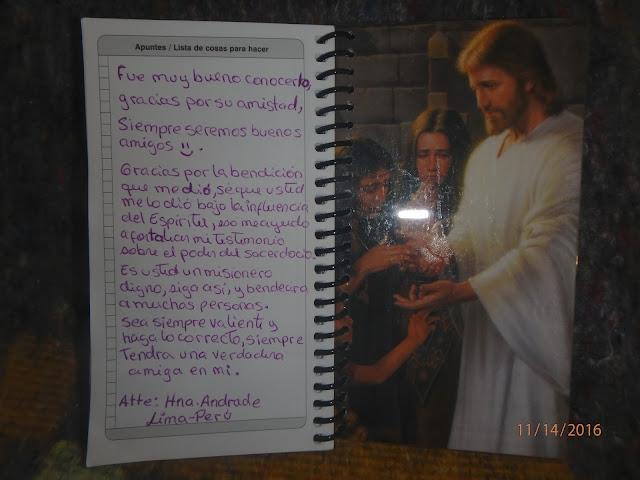 Apuntes / Lista de cosas para hacer
Fue muy bueno conocerlo,
gracias por su amistad,
Siempre seremos buenos
amigos.
Gracias por la bendición
que me dió, sé que usted
me lo dió bajo la influencia
del Espíritu, eso me ayudó
a fortalecer mi testimonio
sobre el poder del sacerdocio.
Es usted un misionero
digno, siga así, y bendecirá
a muchas personas.
Sea siempre valiente y
haga lo correcto, siempre
Tendra una verdadera
amiga en mi.
Atte: Hna. Andrade
Lima-Perú
11/14/2016